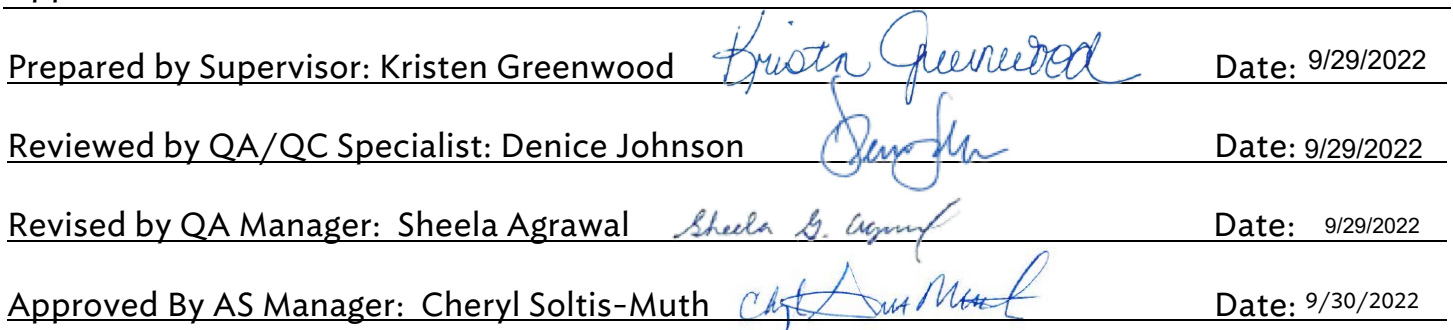 Prepared by Supervisor: Kristen Greenwood Kristen Greenwood Date: 9/29/2022
Reviewed by QA/QC Specialist: Denice Johnson Date: 9/29/2022
Revised by QA Manager: Sheela Agrawal Sheela G. Agrawal Date: 9/29/2022
Approved By AS Manager: Cheryl Soltis-Muth Date: 9/30/2022